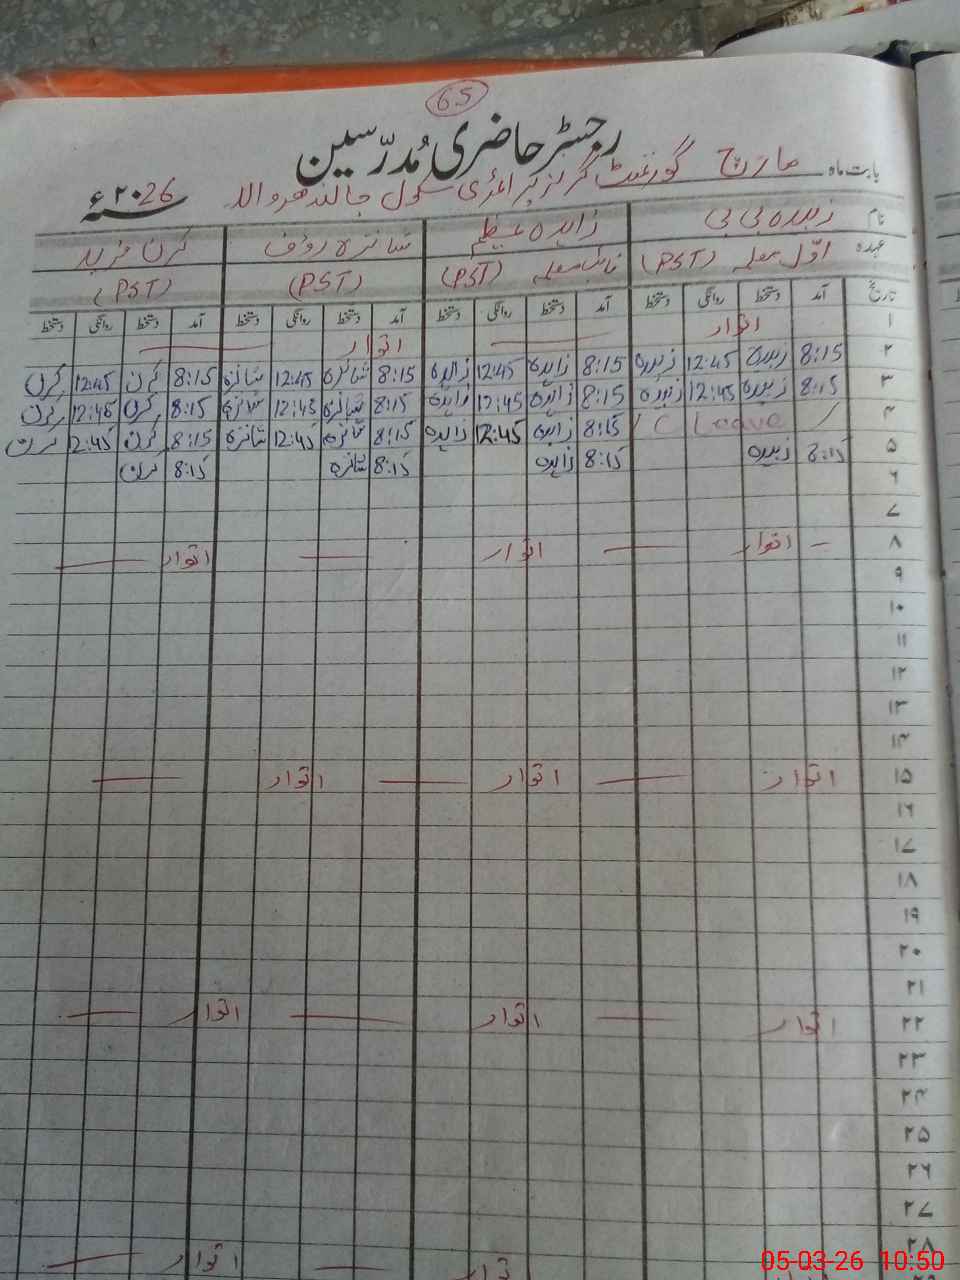 65
رجسٹر حاضری مُدرّسین
بابت ماہ مارچ گورنمنٹ گرلز پرائمری سکول جالندھر والا ۲۰26ء
نام زبیدہ بی بی زاہدہ عظیم شائزہ رؤف کرن فرید
عہدہ اوّل معلمہ (PST) نائب معلمہ (PST) (PST) (PST)
تاریخ آمد دستخط روانگی دستخط آمد دستخط روانگی دستخط آمد دستخط روانگی دستخط آمد دستخط روانگی دستخط
۱ اتوار اتوار
۲ 8:15 زبیدہ 12:45 زبیدہ 8:15 زاہدہ 12:45 زاہدہ 8:15 شائزہ 12:45 شائزہ 8:15 کرن 12:45 کرن
۳ 8:15 زبیدہ 12:45 زبیدہ 8:15 زاہدہ 12:45 زاہدہ 8:15 شائزہ 12:45 شائزہ 8:15 کرن 12:45 کرن
۴ C Leave 8:15 زاہدہ 12:45 زاہدہ 8:15 شائزہ 12:45 شائزہ 8:15 کرن 12:45 کرن
۵ 8:15 زبیدہ 8:15 زاہدہ 8:15 شائزہ 8:15 کرن
۶
۷
۸ اتوار اتوار اتوار
۹
۱۰
۱۱
۱۲
۱۳
۱۴
۱۵ اتوار اتوار اتوار
۱۶
۱۷
۱۸
۱۹
۲۰
۲۱
۲۲ اتوار اتوار اتوار
۲۳
۲۴
۲۵
۲۶
۲۷
۲۸
اتوار اتوار
05-03-26 10:50